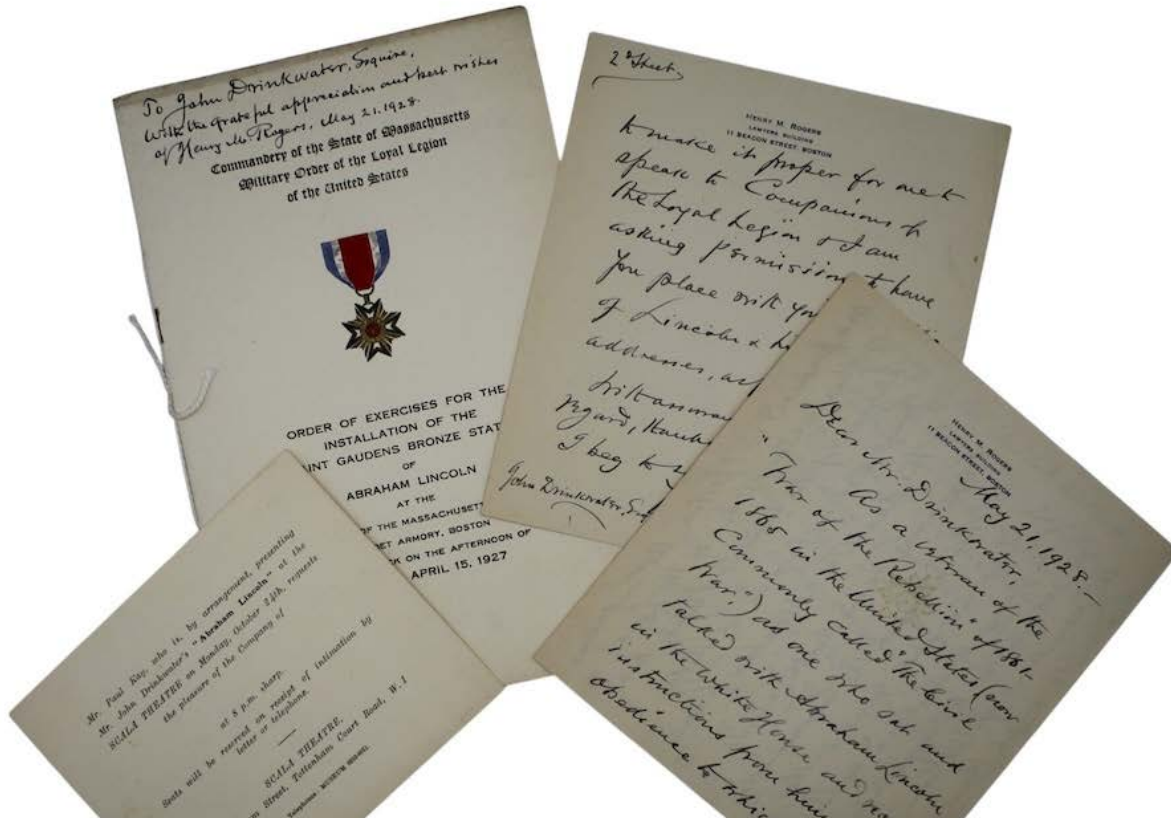 To John Drinkwater, Esquire,
With the grateful appreciation and best wishes
of Henry M. Rogers, May 21, 1928.
Commandery of the State of Massachusetts
Military Order of the Loyal Legion
of the United States
ORDER OF EXERCISES FOR THE
INSTALLATION OF THE
INT GAUDENS BRONZE STAT
OF
ABRAHAM LINCOLN
AT THE
OF THE MASSACHUSETT
ET ARMORY, BOSTON
CK ON THE AFTERNOON OF
APRIL 15, 1927
2d Sheet
HENRY M. ROGERS
LAWYERS BUILDING
11 BEACON STREET, BOSTON
to make it proper for me to
speak to Companions of
the Loyal Legion & I am
asking permission to have
you place with you
of Lincoln &
addresses, as
regard,
I beg to
John Drinkwater, Esq
HENRY M. ROGERS
LAWYERS BUILDING
11 BEACON STREET, BOSTON
May 21, 1928.—
Dear Mr. Drinkwater,
As a veteran of the
"War of the Rebellion" of 1861-
1865 in the United States (now
Commonly called "The Civil
War",) as one who sat and
talked with Abraham Lincoln
in the White House and
instructions from him
obedience to
Mr. Paul Kay, who is, by arrangement, presenting
Mr. John Drinkwater's "Abraham Lincoln" at the
SCALA THEATRE on Monday, October 24th, requests
the pleasure of the Company of
at 8 p.m. sharp.
Seats will be reserved on receipt of intimation by
letter or telephone.
SCALA THEATRE,
Street, Tottenham Court Road, W.1
Telephone: MUSEUM